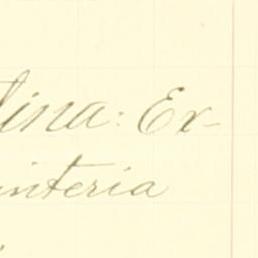 lina: Ex-
interia